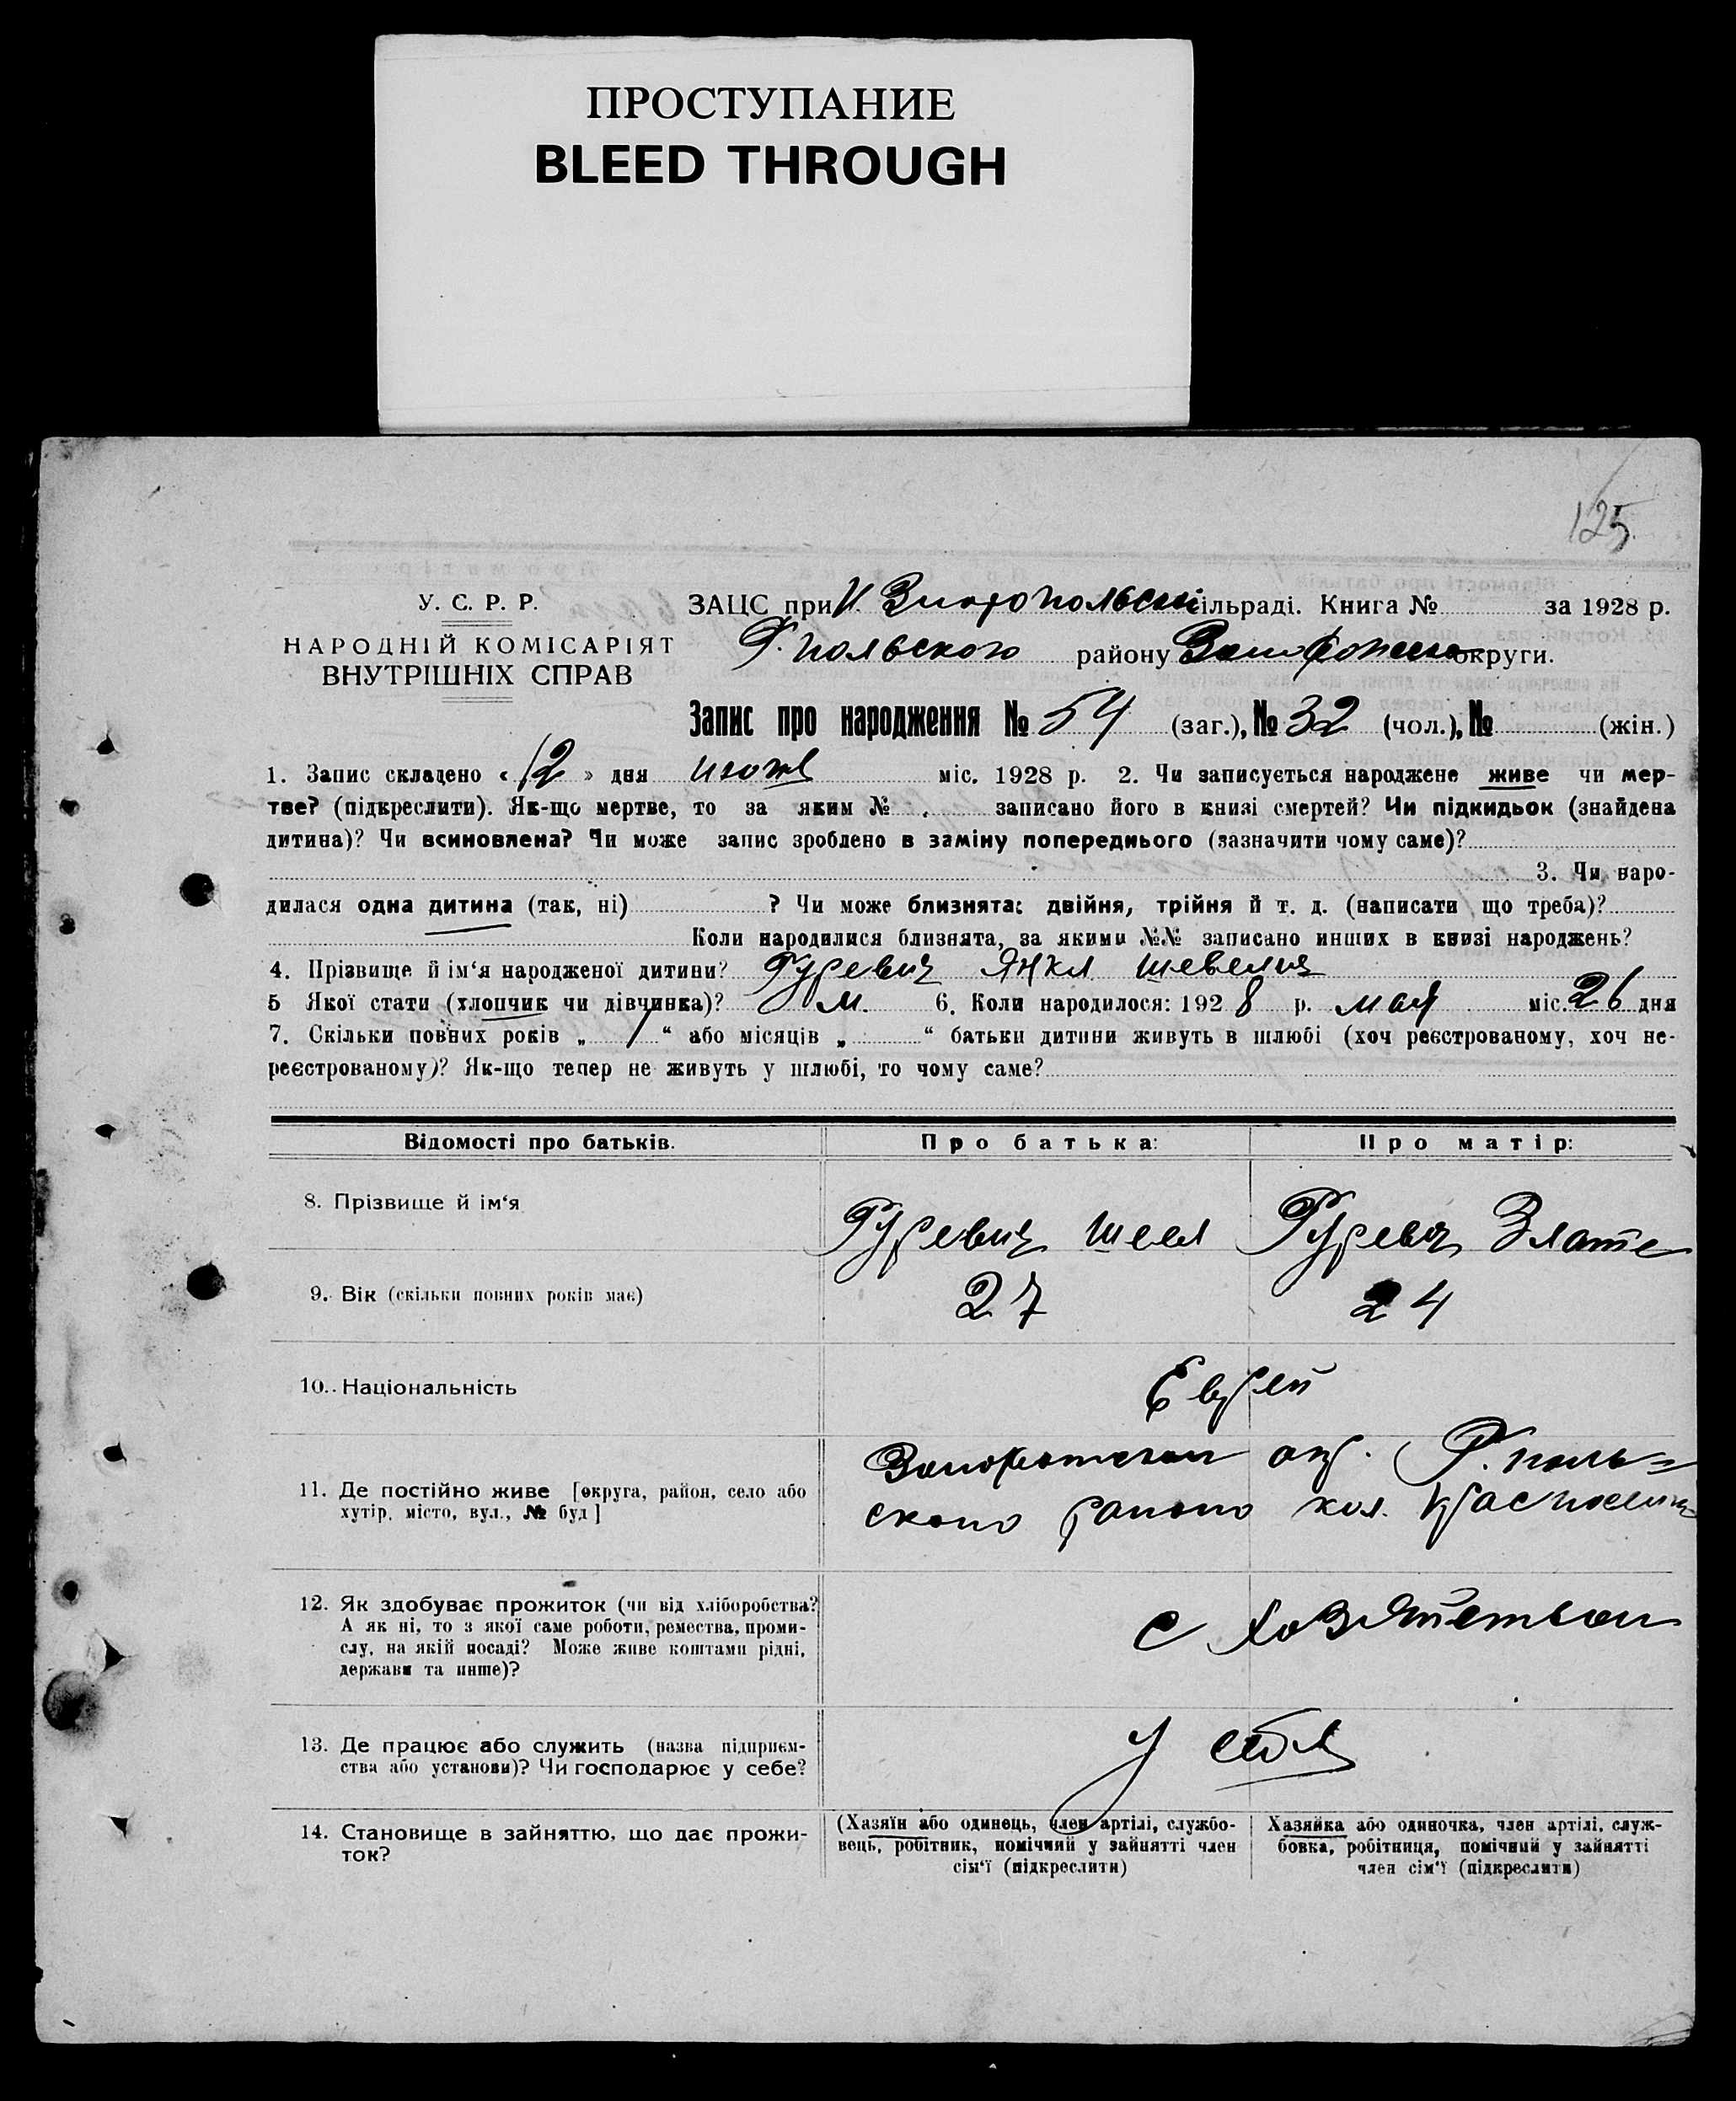 ПРОСТУПАНИЕ
BLEED THROUGH
125
У. С. Р. Р.
НАРОДНІЙ КОМІСАРІЯТ
ВНУТРІШНІХ СПРАВ
ЗАЦС при Н. Златопольскі ільраді. Книга № за 1928 р.
Г. польского району округи.
Запис про народження № 54 (заг.), № 32 (чол.), № (жін.)
1. Запис складено « 12 » дня міс. 1928 р. 2. Чи записується народжене живе чи мер-
тве? (підкреслити). Як-що мертве, то за яким № записано його в книзі смертей? Чи підкидьок (знайдена
дитина)? Чи всиновлена? Чи може запис зроблено в заміну попереднього (зазначити чому саме)?
3. Чи наро-
дилася одна дитина (так, ні) ? Чи може близнята: двійня, трійня й т. д. (написати що треба)?
Коли народилися близнята, за якими №№ записано инших в книзі народжень?
4. Прізвище й ім‘я народженої дитини? Гуревич Янкл Шевелич
5 Якої стати (хлопчик чи дівчинка)? м. 6. Коли народилося: 192 8 р. мая міс. 26 дня
7. Скільки повних років „ 1 “ або місяців „ “ батьки дитини живуть в шлюбі (хоч реєстрованому, хоч не-
реєстрованому)? Як-що тепер не живуть у шлюбі, то чому саме?
Відомості про батьків. Про батька: Про матір:
8. Прізвище й ім‘я
Гуревич Шевл Гуревич Злате
9. Вік (скільки повних років має) 27 24
10. Національність Еврей
11. Де постійно живе [округа, район, село або
хутір, місто, вул., № буд]
окр. Г. поль=
ского кол.
12. Як здобуває прожиток (чи від хліборобства?
А як ні, то з якої саме роботи, ремества, проми-
слу, на якій посаді? Може живе коштами рідні,
держави та инше)?
с хозяйством
13. Де працює або служить (назва підприєм-
ства або установи)? Чи господарює у себе?
у себя
14. Становище в зайняттю, що дає прожи-
ток?
(Хазяїн або одинець, член артілі, службо-
вець, робітник, помічний у зайнятті член
сім‘ї (підкреслити)
Хазяйка або одиночка, член артілі, служ-
бовка, робітниця, помічний у зайнятті
член сім‘ї (підкреслити)